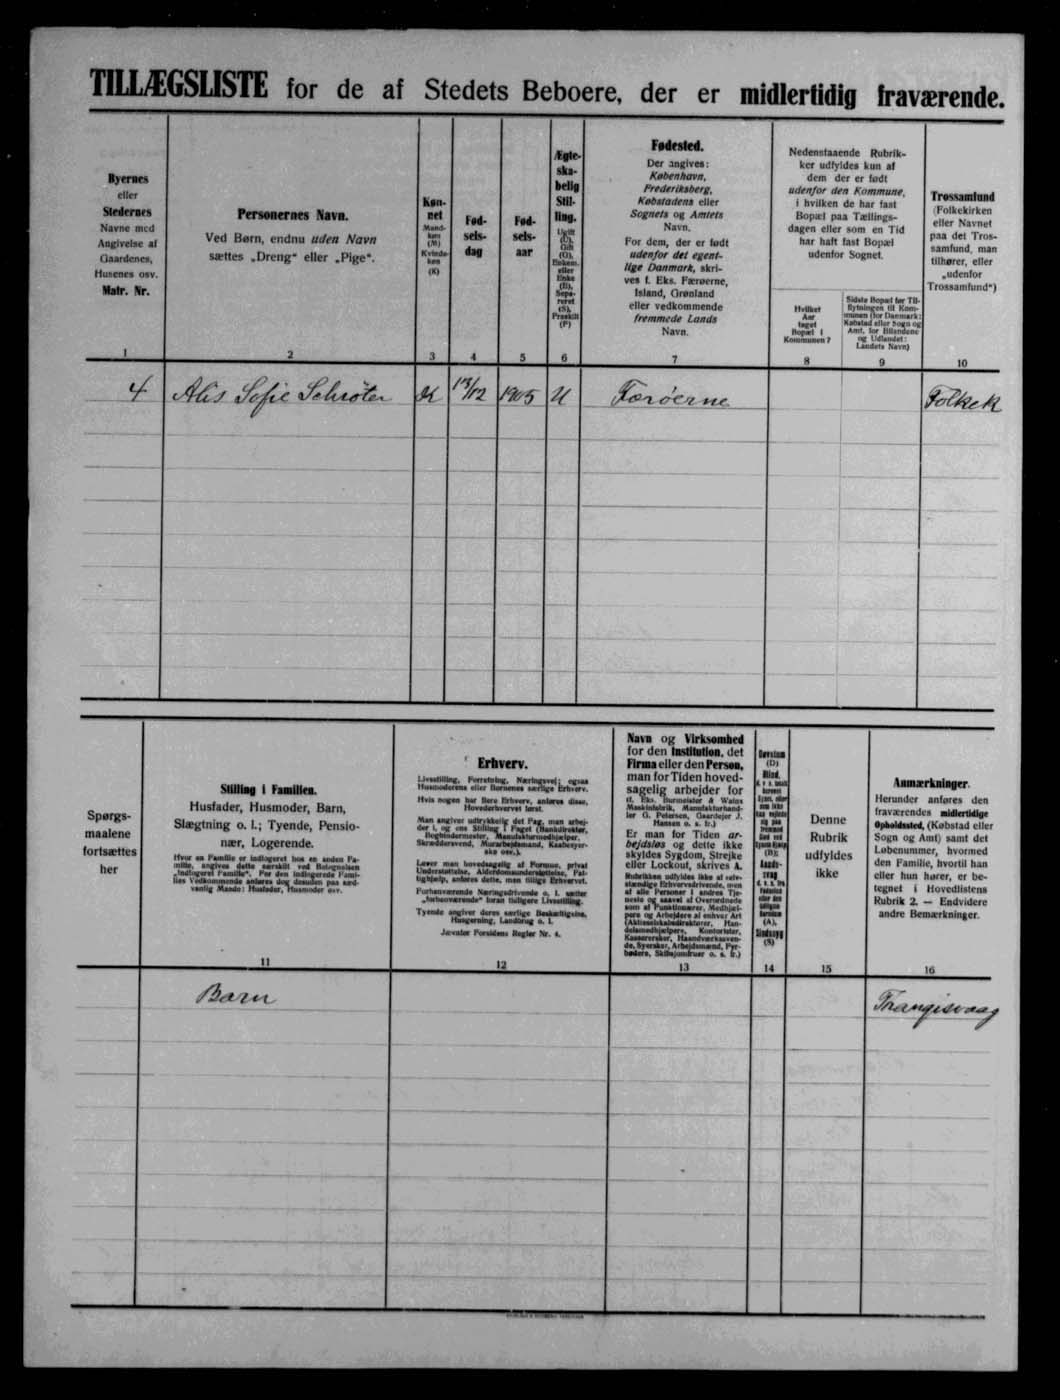 TILLÆGSLISTE for de af Stedets Beboere, der er midlertidig fraværende.
Byernes
eller
Stedernes
Navne med
Angivelse af
Gaardenes,
Husenes osv.
Matr. Nr.
Personernes Navn.
Ved Børn, endnu uden Navn
sættes „Dreng“ eller „Pige“.
Køn-
net
Mand-
køn
(M)
Kvinde-
køn
(K)
Fød-
sels-
dag
Fød-
sels-
aar
Ægte-
ska-
belig
Stil-
ling.
Ugift
(U),
Gift
(G),
Enkem.
eller
Enke
(E),
Sepa-
reret
(S),
Fraskilt
(F)
Fødested.
Der angives:
København,
Frederiksberg,
Købstadens eller
Sognets og Amtets
Navn.
For dem, der er født
udenfor det egent-
lige Danmark, skri-
ves f. Eks. Færøerne,
Island, Grønland
eller vedkommende
fremmede Lands
Navn.
Nedenstaaende Rubrik-
ker udfyldes kun af
dem der er født
udenfor den Kommune,
i hvilken de har fast
Bopæl paa Tællings-
dagen eller som en Tid
har haft fast Bopæl
udenfor Sognet.
Hvilket
Aar
taget
Bopæl i
Kommunen?
Sidste Bopæl før Til-
flytningen til Kom-
munen (for Danmark:
Købstad eller Sogn og
Amt, for Bilandene
og Udlandet:
Landets Navn)
Trossamfund
(Folkekirken
eller Navnet
paa det Tros-
samfund, man
tilhører, eller
„udenfor
Trossamfund“)
1 2 3 4 5 6 7 8 9 10
4 Alis Sofie Schrøter K 13/12 1905 U Færøerne Folkek
Spørgs-
maalene
fortsættes
her
Stilling i Familien.
Husfader, Husmoder, Barn,
Slægtning o. l.; Tyende, Pensio-
nær, Logerende.
Hvor en Familie er indlogeret hos en anden Fa-
milie, angives dette særskilt ved Betegnelsen
„Indlogeret Familie“. For den indlogerede Fami-
lies Vedkommende anføres dog desuden paa sæd-
vanlig Maade: Husfader, Husmoder osv.
Erhverv.
Livsstilling, Forretning, Næringsvej; ogsaa
Husmoderens eller Børnenes særlige Erhverv.
Hvis nogen har flere Erhverv, anføres disse,
Hovederhvervet først.
Man angiver udtrykkelig det Fag, man arbej-
der i, og ens Stilling i Faget (Bankdirektør,
Bogbindermester, Manufakturmedhjælper,
Skræddersvend, Murarbejdsmand, Kasbesyer-
ske osv.).
Lever man hovedsagelig af Formue, privat
Understøttelse, Alderdomsunderstøttelse, Fat-
tighjælp, anføres dette, men tillige Erhvervet.
Forhenværende Næringsdrivende o. l. sætter
„forhenværende“ foran tidligere Livsstilling.
Tyende angiver deres særlige Beskæftigelse,
Husgerning, Landbrug o. l.
Jævnfør Forsidens Regler Nr. 4.
Navn og Virksomhed
for den Institution, det
Firma eller den Person,
man for Tiden hoved-
sagelig arbejder for
(f. Eks. Burmeister & Wains
Maskinfabrik, Manufakturhand-
ler G. Petersen, Gaardejer J.
Hansen o. s. fr.)
Er man for Tiden ar-
bejdsløs og dette ikke
skyldes Sygdom, Strejke
eller Lockout, skrives A.
Rubrikken udfyldes ikke af selv-
stændige Erhvervsdrivende, men
af alle Personer i andres Tje-
neste og saavel af Overordnede
som af Funktionærer, Medhjæl-
pere og Arbejdere af enhver Art
(Aktieselskabsdirektører, Han-
delsmedhjælpere, Kontorister,
Kasserersker, Haandværkssven-
de, Syersker, Arbejdsmænd, Fyr-
bødere, Skibsjomfruer o. s. fr.)
Døvstum
(D)
Blind,
(B);
Aands-
svag
(A),
Sindssyg
(S)
Denne
Rubrik
udfyldes
ikke
Anmærkninger.
Herunder anføres den
fraværendes midlertidige
Opholdssted, (Købstad eller
Sogn og Amt) samt det
Løbenummer, hvormed
den Familie, hvortil han
eller hun hører, er be-
tegnet i Hovedlistens
Rubrik 2. — Endvidere
andre Bemærkninger.
11 12 13 14 15 16
Barn Trangisvaag